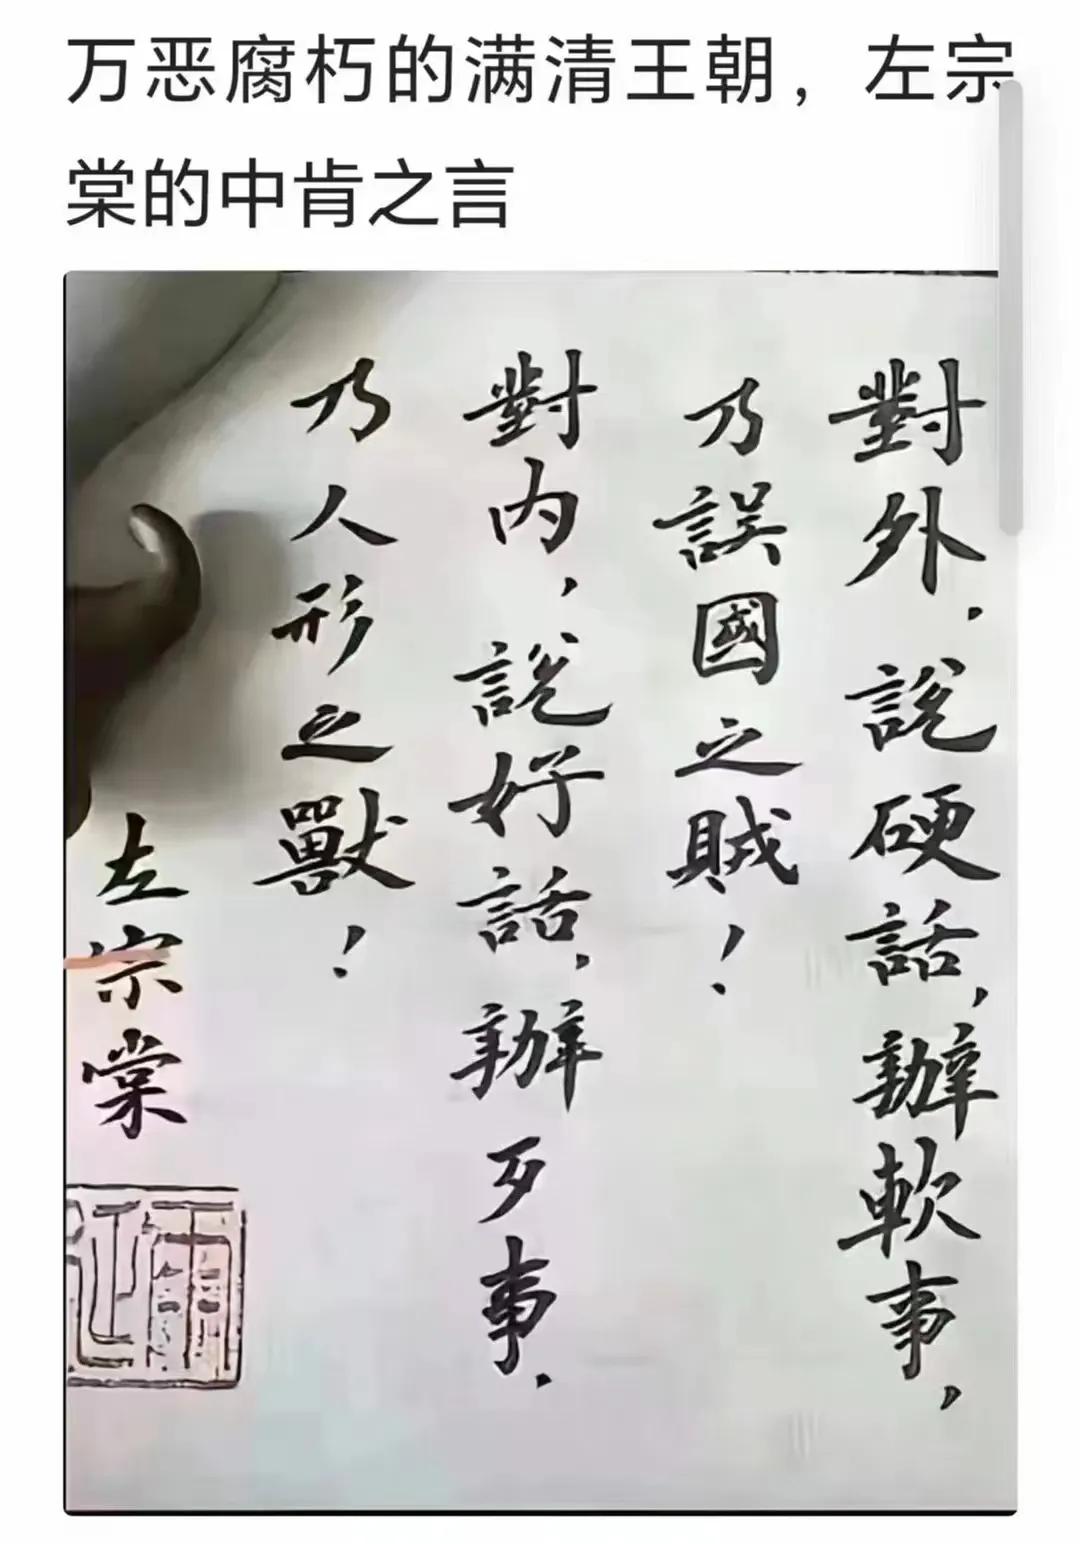 万恶腐朽的满清王朝，左宗
棠的中肯之言
對外，説硬話，辦軟事，
乃誤國之賊！
對内，説好話，辦歹事，
乃人形之獸！
左宗棠